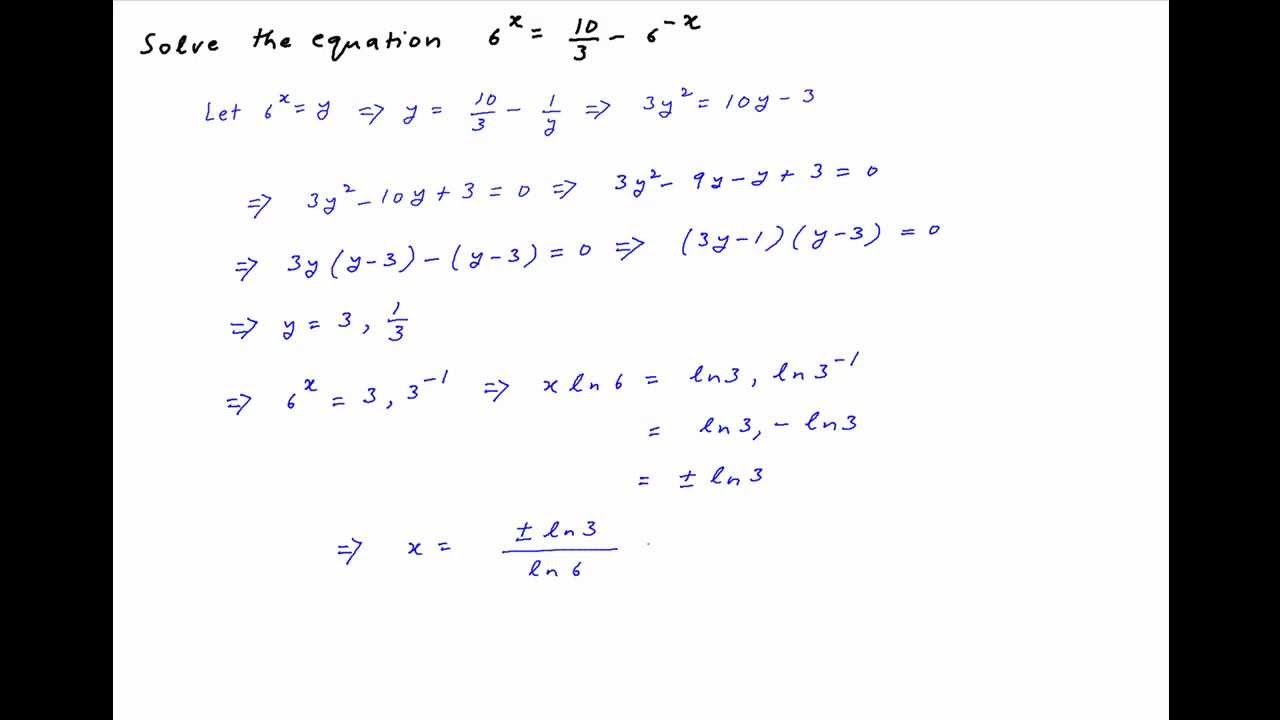 Solve the equation 6^x = 10/3 - 6^-x
Let 6^x = y ⇒ y = 10/3 - 1/y ⇒ 3y² = 10y - 3
⇒ 3y² - 10y + 3 = 0 ⇒ 3y² - 9y - y + 3 = 0
⇒ 3y(y-3) - (y-3) = 0 ⇒ (3y-1)(y-3) = 0
⇒ y = 3, 1/3
⇒ 6^x = 3, 3^-1 ⇒ x ln 6 = ln 3, ln 3^-1
= ln 3, - ln 3
= ± ln 3
⇒ x = ± ln 3 / ln 6